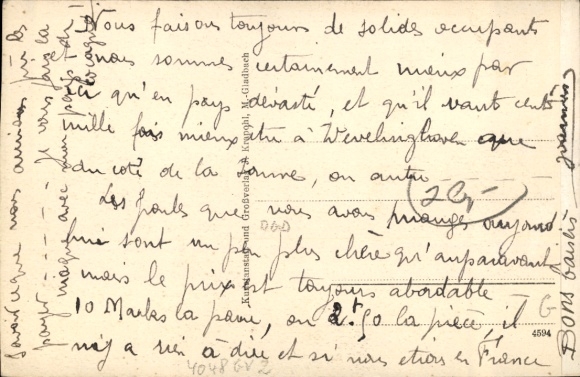 Nous faisons toujours de solides occupants
nous sommes certainement mieux par
ici qu'en pays dévasté, et qu'il vaut cent
mille fois mieux être à Wevelinghoven que
du coté de la Somme, ou autre
Les poules que nous avons mangé aujourd'
hui sont un peu plus chère qu'auparavant
mais le prix est toujours abordable
10 Marks la paire, ou 2.f 50 la pièce, il
n'y a rien à dire et si nous etions en France
nous aurions
avec mon
Bons baisers
Kunstanstalt und Großverlag Kropohl, M.-Gladbach
4594
2G,-
G
4048 GV 2